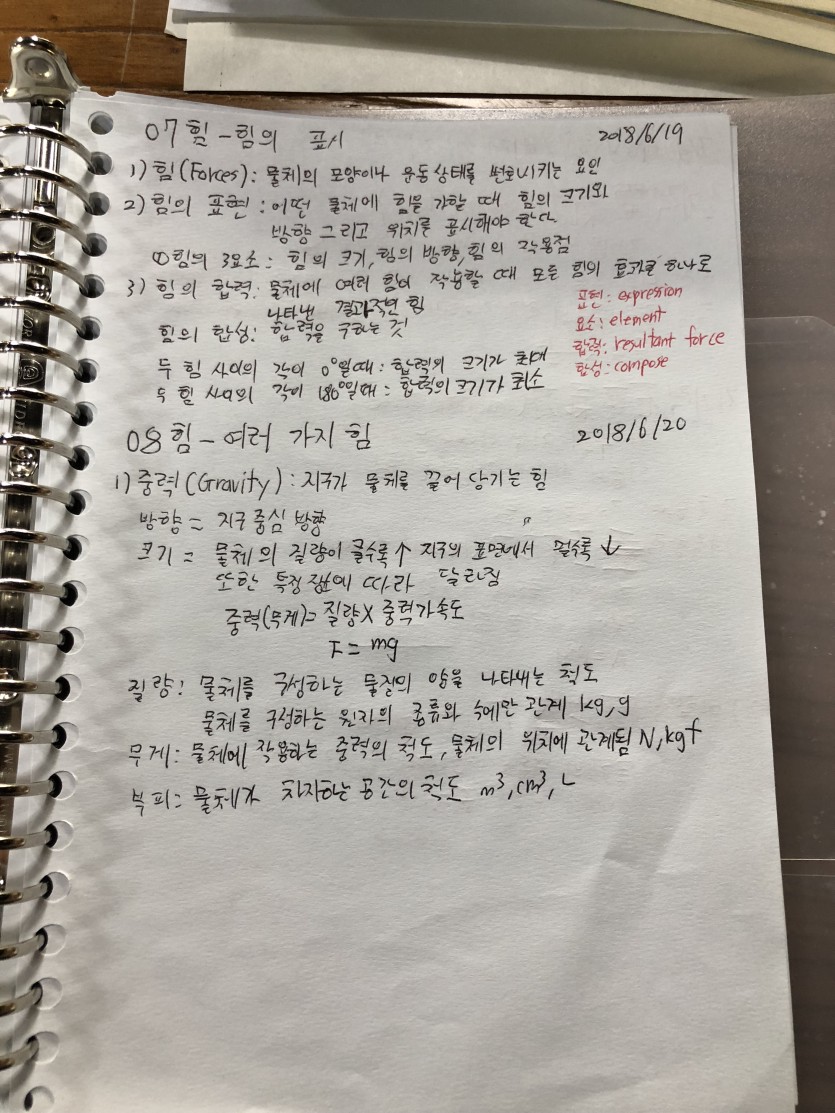 07 힘 - 힘의 표시 2018/6/19
1) 힘(Forces): 물체의 모양이나 운동상태를 변화시키는 요인
2) 힘의 표현: 어떤 물체에 힘을 가할 때 힘의 크기와
방향 그리고 위치를 표시해야 한다
① 힘의 3요소: 힘의 크기, 힘의 방향, 힘의 작용점
3) 힘의 합력: 물체에 여러 힘이 작용할 때 모든 힘의 효과를 하나로
나타낸 결과적인 힘
힘의 합성: 합력을 구하는 것
표현: expression
요소: element
합력: resultant force
합성: compose
두 힘 사이의 각이 0°일때: 합력의 크기가 최대
두 힘 사이의 각이 180°일때: 합력의 크기가 최소
08 힘 - 여러 가지 힘 2018/6/20
1) 중력(Gravity): 지구가 물체를 끌어 당기는 힘
방향 = 지구 중심 방향
크기 = 물체의 질량이 클수록 ↑ 지구의 표면에서 멀수록 ↓
또한 특정 장소에 따라 달라짐
중력(무게) = 질량 X 중력가속도
F = mg
질량: 물체를 구성하는 물질의 양을 나타내는 척도
물체를 구성하는 원자의 종류와 수에만 관계 kg, g
무게: 물체에 작용하는 중력의 척도, 물체의 위치에 관계됨 N, kgf
부피: 물체가 차지하는 공간의 척도 m³, cm³, L